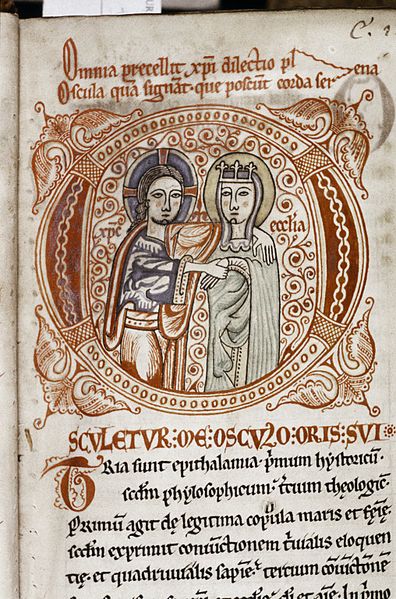 Omnia precellit xp̄i dilectio pl ena
Oscula qua signat. que poscunt corda ser
xpc
ecclia
SCVLETVR: ME: OSCVLO: ORIS: SVI
TRia sunt epithalamia. p̄mum hystoricū.
sc̄dm phylosophicum. t̄cium theologic̄.
PRimū agit de legitima copula maris et
sc̄dm exprimit coniūctionem t̄uialis eloquen
tię. et quadriuialis sapię. tercium